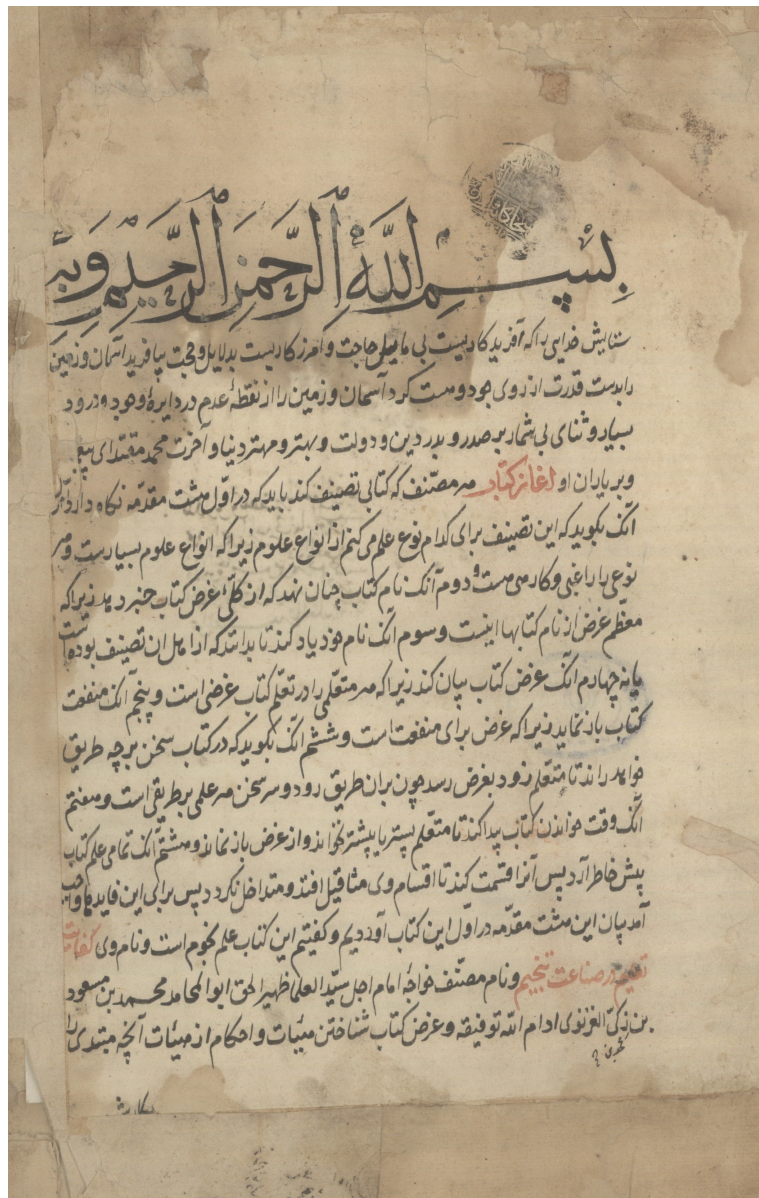 بسم الله الرحمن الرحيم و به
ستایش خدایی را که آفریدکاریست بی حاجت و آمرزکاریست بدلایل و حجت بیافرید آسمان و زمین
را بدست قدرت از روی جود و هست کرد آسمان و زمین را از نقطهٔ عدم در دایرهٔ وجود و درود
بسیار و ثنای بی شمار بر صدر و بدر دین و دولت و بهتر و مهتر دنیا و آخرت محمد مقتدای
و بر یاران او آغاز کتاب هر مصنف که کتابی تصنیف کند باید که در اول هشت مقدمه نکاه دارد اول
آنک بکوید که این تصنیف برای کدام نوع علم می کنم از انواع علوم زیرا که انواع علوم بسیارست و هر
نوعی را راغبی و کارهی هست و دوم آنک نام کتاب چنان نهد که از کلی غرض کتاب خبر دهد زیرا که
معظم غرض از نام کتابها اینست و سوم آنک نام خود یاد کند تا بدانند که از اهل ان تصنیف بوده است
یا نه چهارم آنک غرض کتاب بیان کند زیرا که هر متعلمی را در تعلم کتاب غرضی است و پنجم آنک منفعت
کتاب باز نماید زیرا که غرض برای منفعت است و ششم آنک بکوید که در کتاب سخن بر چه طریق
خواهد راند تا متعلم زود بغرض رسد چون بران طریق رود و هر سخن هر علمی بر طریقی است و هفتم
آنک وقت خواندن کتاب پیدا کند تا متعلم پستر یا پیشتر نخواند و از غرض باز نماند و هشتم آنک تمامی علم کتاب
پیش خاطر آرد پس آنرا قسمت کند تا اقسام وی متاقیل افتد و متداخل نکردد پس برای این فایدها واجب
آمد بیان این هشت مقدمه در اول این کتاب آوردیم و کفتیم این کتاب علم نجوم است و نام وی کفایت
تعلیم در صناعت تنجیم و نام مصنف خواجه امام اجل سید العلما ظهیر الحق ابو المحامد محمد بن مسعود
بن زکی الغزنوی ادام الله توفیقه و غرض کتاب شناختن هیئات و احکام از هیئات آنچه مبتدی را